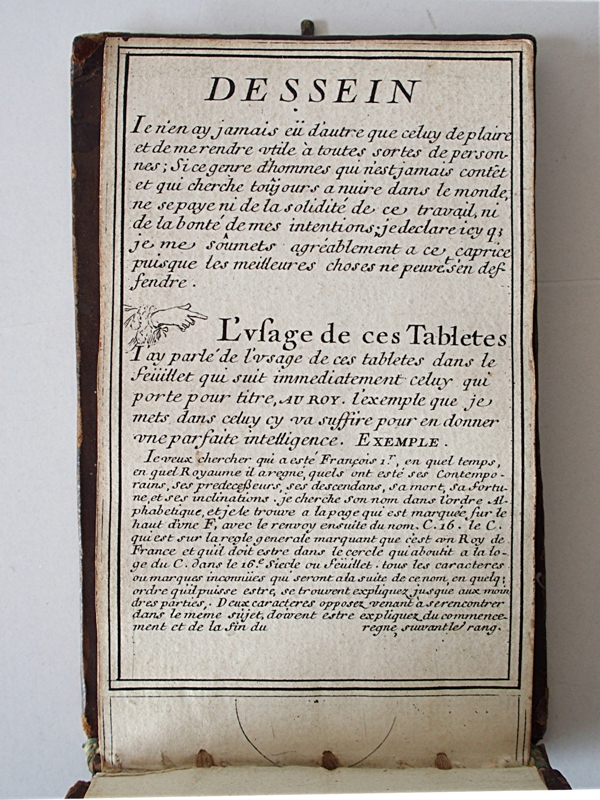 DESSEIN
Ie n'en ay jamais eü d'autre que celuy de plaire
et de me rendre vtile à toutes sortes de person-
nes; Si ce genre d'hommes qui n'est jamais contẽt
et qui cherche toûjours a nuire dans le monde,
ne se paye ni de la solidité de ce travail, ni
de la bonté de mes intentions; je declare icy q;
je me soumets agréablement a ce caprice
puisque les meilleures choses ne peuvẽt s'en def-
fendre.
L'vsage de ces Tabletes
I'ay parlé de l'vsage de ces tabletes dans le
feüillet qui suit immediatement celuy qui
porte pour titre, AU ROY. l'exemple que je
mets dans celuy cy va suffire pour en donner
vne parfaite intelligence. EXEMPLE.
Ie veux chercher qui a esté François 1.r, en quel temps,
en quel Royaume il a regné, quels ont esté ses Contempo-
rains, ses predecesseurs, ses descendans, sa mort, sa fortu-
ne, et ses inclinations. je cherche son nom dans l'ordre Al-
phabetique, et je le trouve a la page qui est marquée sur le
haut d'vne F, avec le renvoy ensuite du nom. C. 16. le C.
qui est sur la regle generale marquant que c'est vn Roy de
France et qu'il doit estre dans le cercle qui aboutit a la lo-
ge du C. dans le 16.e Siecle ou feüillet. tous les caracteres
ou marques inconnües qui seront a la suite de ce nom, en quelq;
ordre qu'il puisse estre, se trouvent expliquez jusque aux moin
dres parties,. Deux caracteres opposez venant a se rencontrer
dans le meme sujet, doivent estre expliquez du commence-
ment et de la fin du regne suivant le rang.